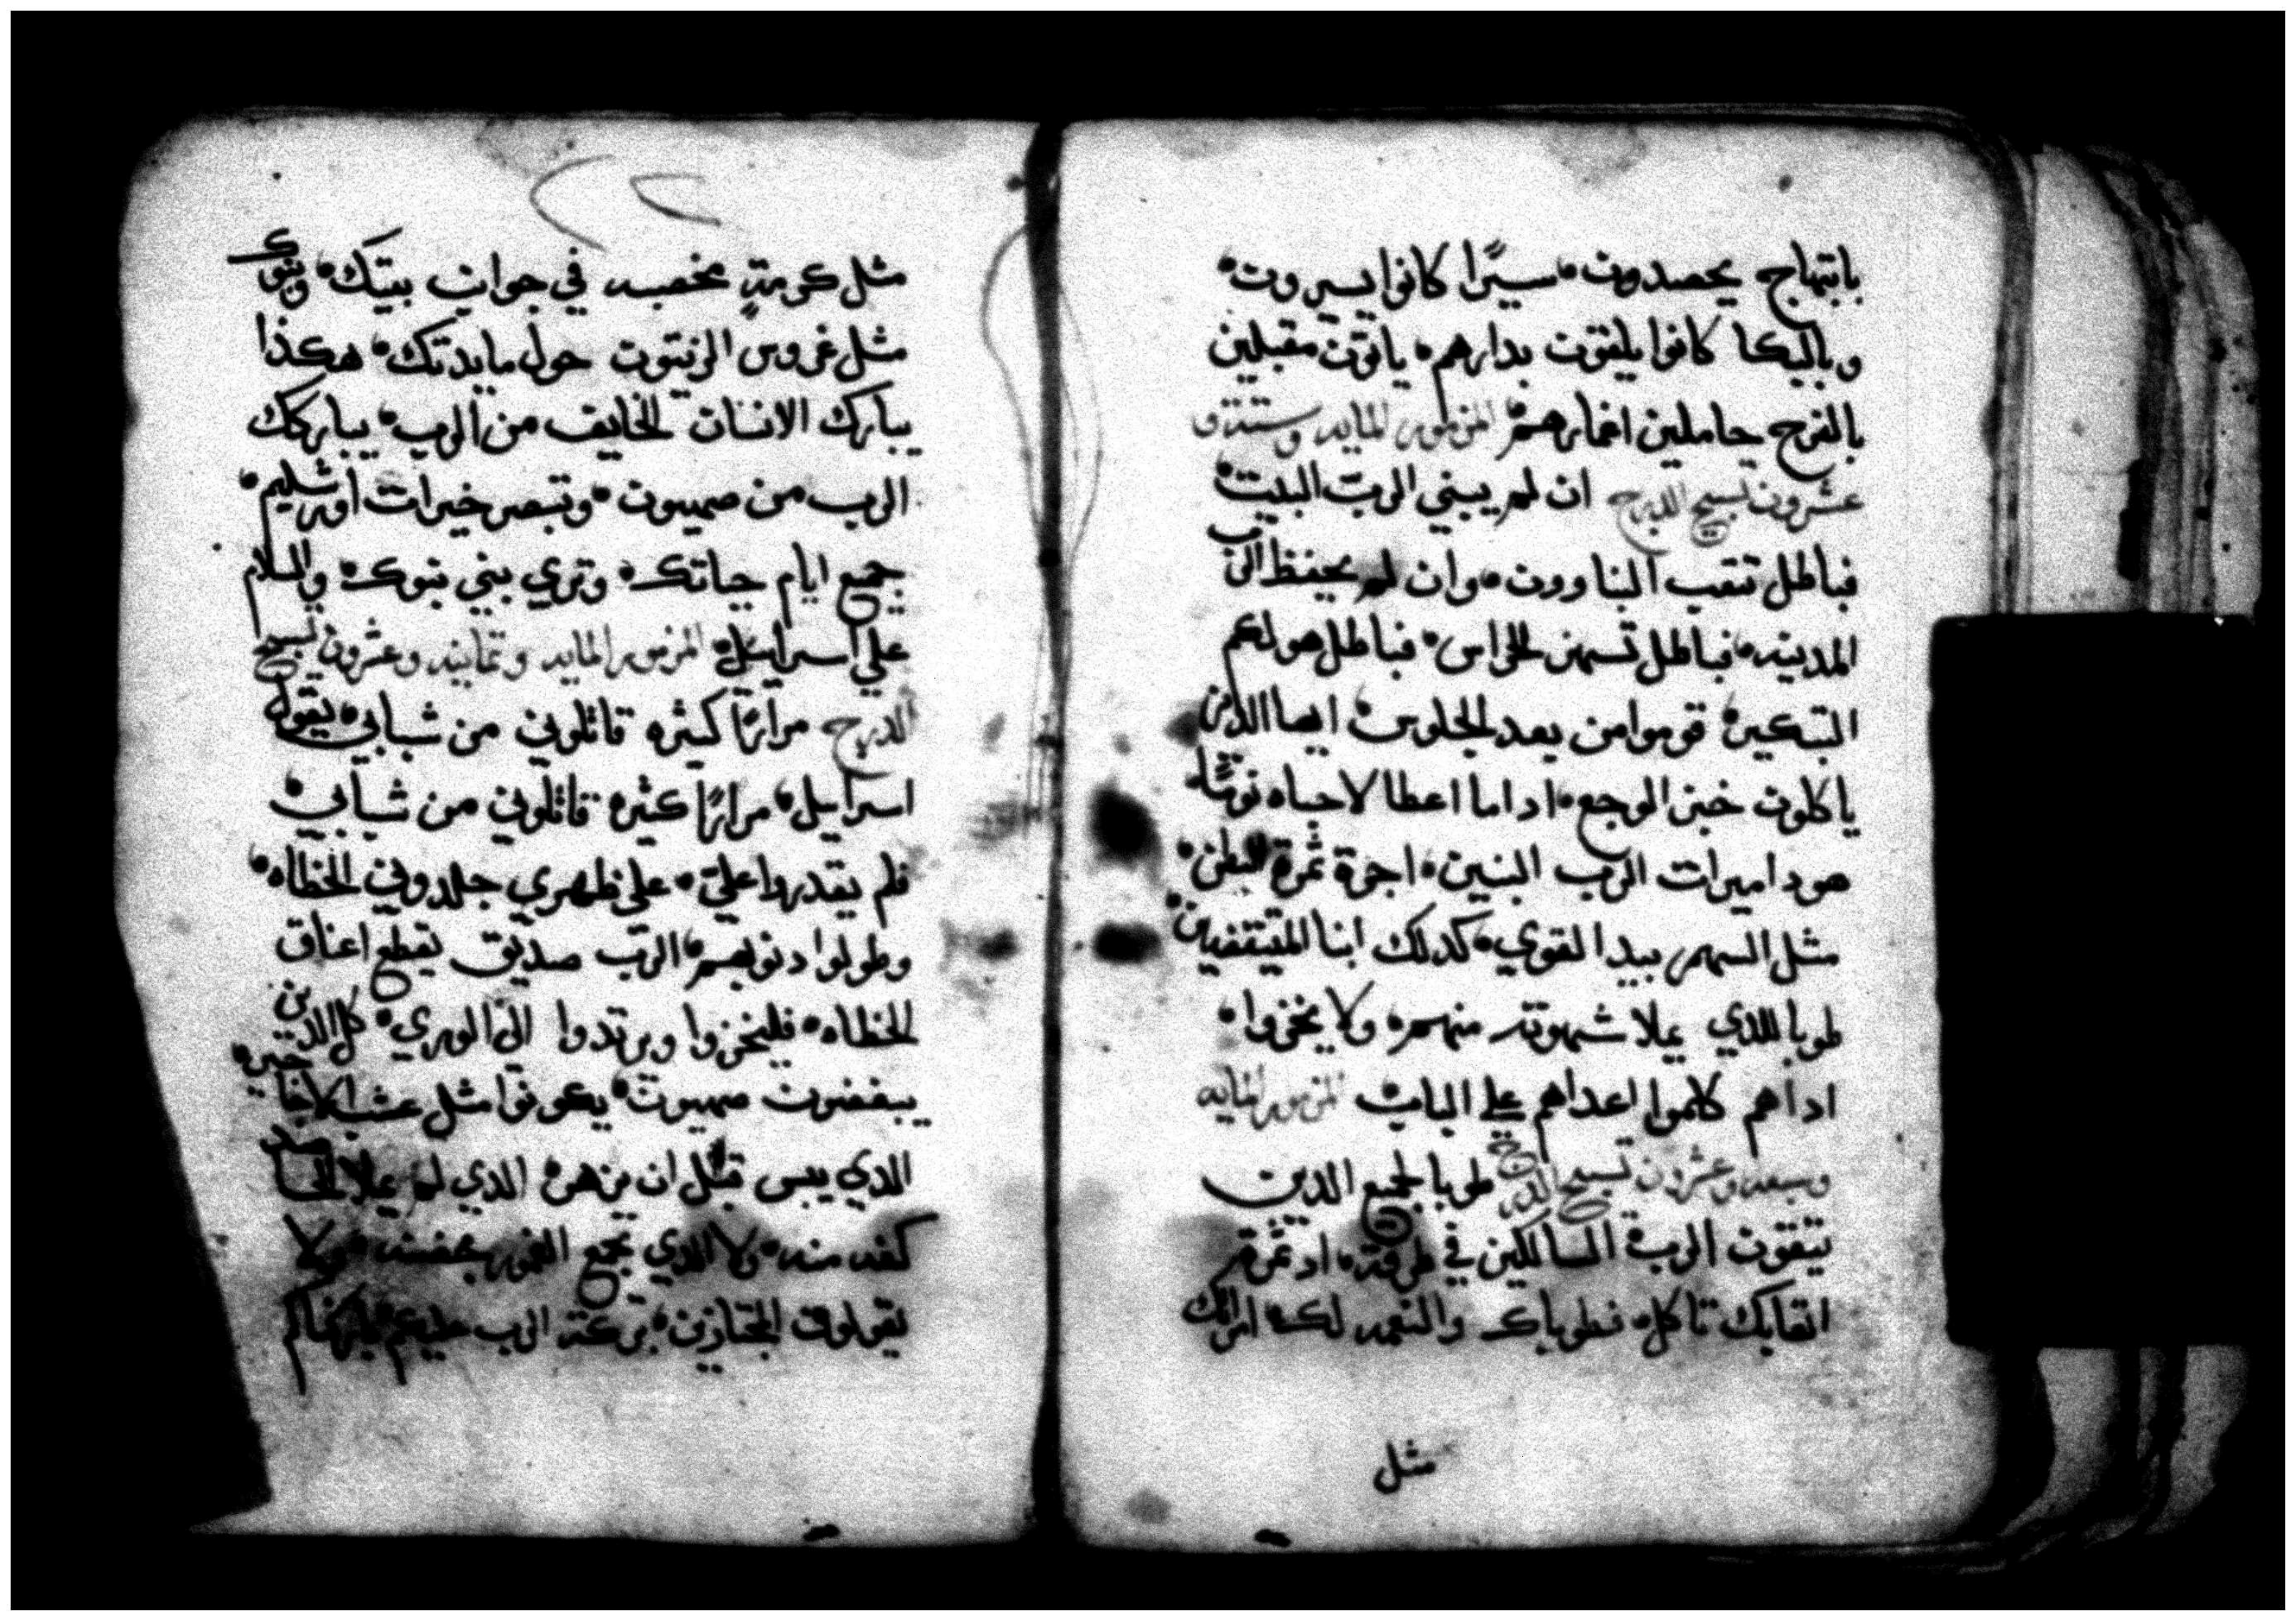 بابتهاج يحصدون سيرًا كانوا يسيرون
وبالبكا كانوا يلقون بدارهم ياتون مقبلين
بالفرح حاملين اغمارهم المزمور المايه وستة و
عشرون تسبيح الدرج ان لم يبني الرب البيت
فباطل تتعب البناوون وان لم يحفظ الرب
المدينه فباطل تسهر الحراس فباطل هو لكم
التبكير قوموا من بعد الجلوس ايها الذين
ياكلون خبز الوجع ادا ما اعطا لاحباه نومًا
هودا ميرات الرب البنين اجرة ثمرة البطن
مثل السهم بيد القوي كدلك ابنا المتيقفين
طوبا للذي يملا شهوته منهم ولا يخزوا
اداهم كلموا اعداهم علي الباب المزمور المايه
وسبعه وعشرون تسبيح الدرج طوبا لجميع الذين
يتقون الرب السالكين في طرقه اد ثمرة
اتعابك تاكل فطوباك والنعمه لك امراتك
مثل
مثل كرمةٍ مخصبه في جوانب بيتك وبنوك
مثل غروس الزيتون حول مايدتك هكذا
يبارك الانسان الخايف من الرب يباركك
الرب من صهيون وتبصر خيرات اورشليم
جميع ايام حياتك وتري بني بنوك والسلام
علي اسراييل المزمور المايه وتمانيه وعشرون تسبيح
الدرج مرارًا كثيره قاتلوني من شبابي يقول
اسراييل مرارًا كثيره قاتلوني من شبابي
فلم يقدروا علي علي ظهري جلدوني الخطاه
وطولوا دنوبهم الرب صديق يقطع اعناق
الخطاه فليخزوا ويرتدوا الي الوري كل الذين
يبغضون صهيون يكونوا مثل عشب الاجاجير
الذي يبس قبل ان يزهر الذي لم يملا الحاصد
كفه منه ولا الذي يجمع الغمور بحضنه ولا
يقولون المجتازين بركة الرب عليكم باركناكم